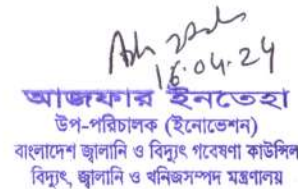 16.04.24
আজফার ইনতেহা
উপ-পরিচালক (ইনোভেশন)
বাংলাদেশ জ্বালানি ও বিদ্যুৎ গবেষণা কাউন্সিল
বিদ্যুৎ, জ্বালানি ও খনিজসম্পদ মন্ত্রণালয়